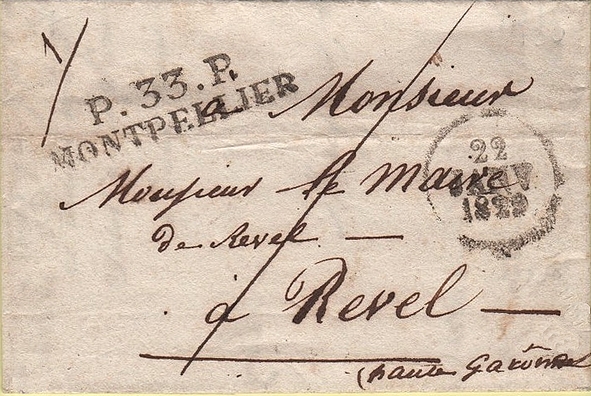 P.33.P.
MONTPELLIER
a Monsieur
22
JANV
1829
Monsieur le Maire
de Revel —
à Revel —
(haute Garonne